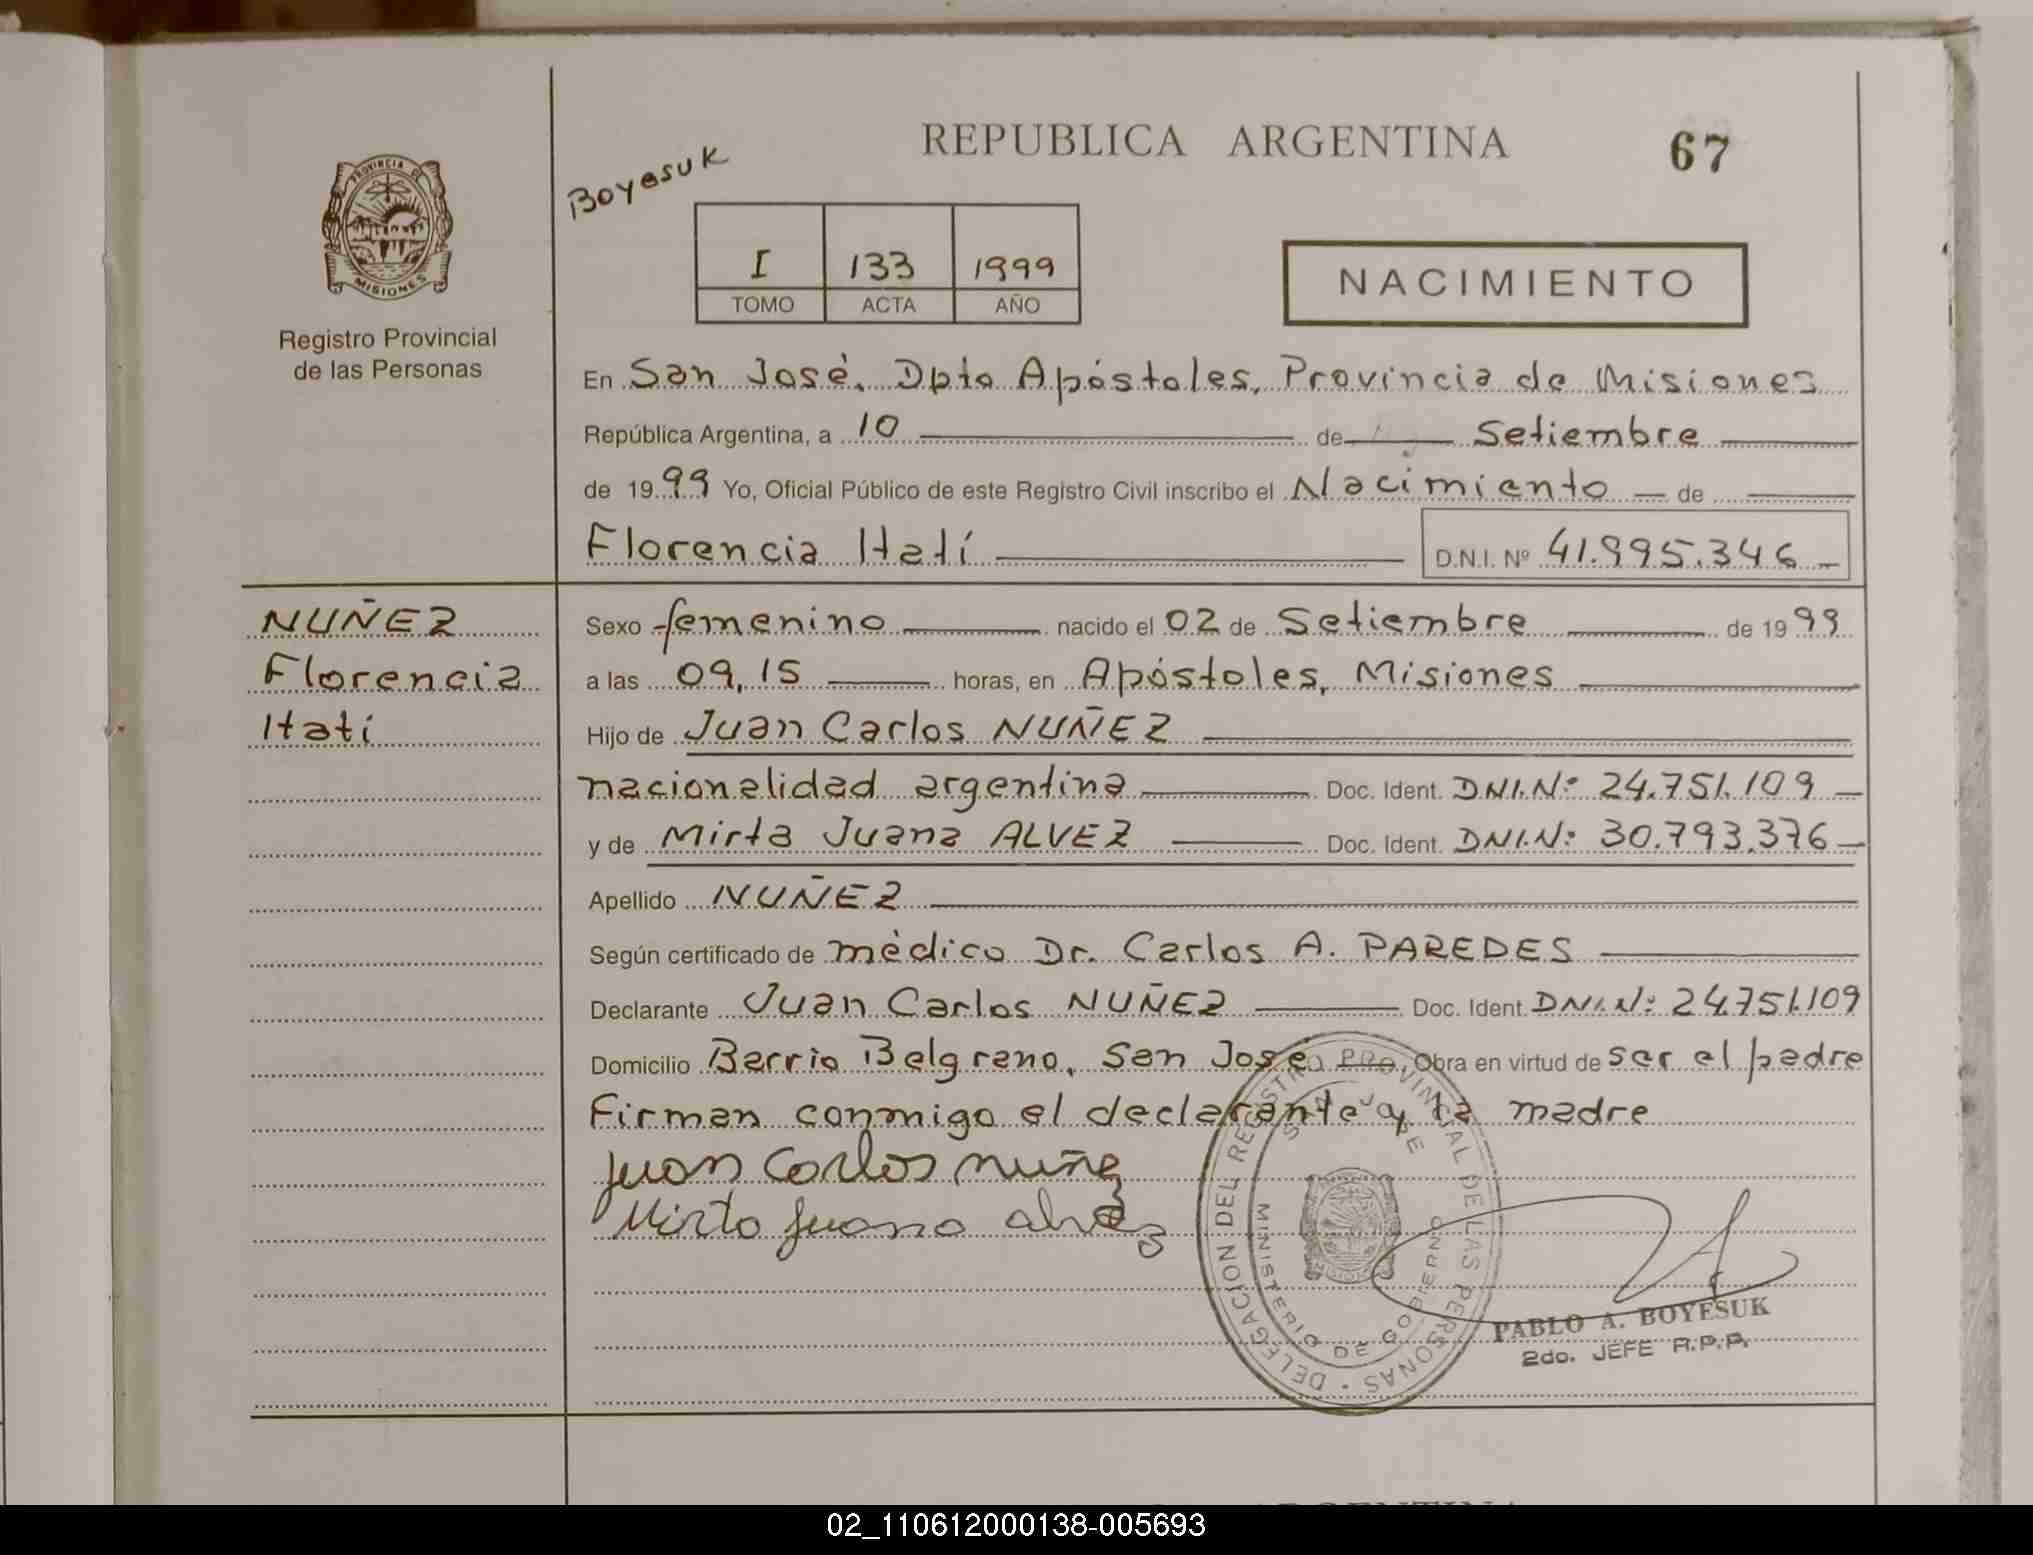 REPUBLICA ARGENTINA
67
Boyesuk
PROVINCIA DE MISIONES
Registro Provincial
de las Personas
I 133 1999
TOMO ACTA AÑO
NACIMIENTO
En San José, Dpto Apóstoles, Provincia de Misiones
República Argentina, a 10 de Setiembre
de 1999 Yo, Oficial Público de este Registro Civil inscribo el Nacimiento de
Florencia Itatí D.N.I. Nº 41.995.346
NUÑEZ
Florencia
Itatí
Sexo femenino nacido el 02 de Setiembre de 1999
a las 09,15 horas, en Apóstoles, Misiones
Hijo de Juan Carlos NUÑEZ
nacionalidad argentina Doc. Ident. DNI.Nº 24.751.109
y de Mirta Juana ALVEZ Doc. Ident. DNI.Nº 30.793.376
Apellido NUÑEZ
Según certificado de médico Dr. Carlos A. PAREDES
Declarante Juan Carlos NUÑEZ Doc. Ident. DNI.Nº 24.751.109
Domicilio Barrio Belgrano, San José Obra en virtud de ser el padre
Firman conmigo el declarante y la madre
Juan Carlos Nuñez
Mirta Juana Alvez
DELEGACION DEL REGISTRO PROVINCIAL DE LAS PERSONAS
SAN JOSE
MINISTERIO DE GOBIERNO
PABLO A. BOYESUK
2do. JEFE R.P.P.
02_110612000138-005693